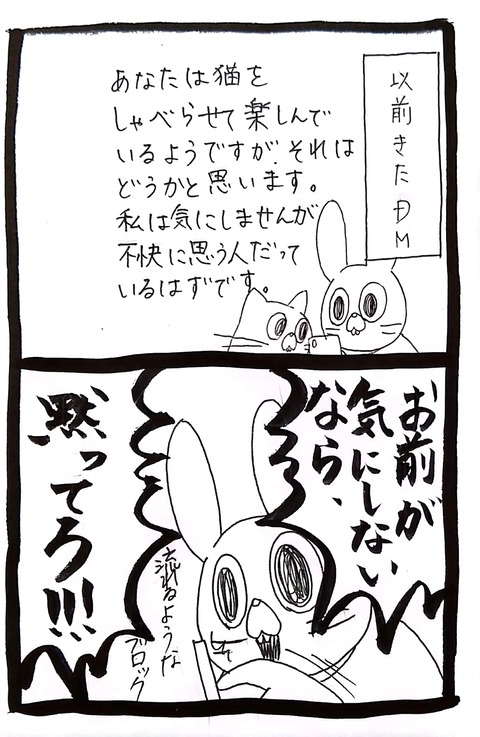 以前きたDM
あなたは猫を
しゃべらせて楽しんで
いるようですが、それは
どうかと思います。
私は気にしませんが
不快に思う人だって
いるはずです。
お前が
気にしない
なら、
黙ってろ!!!
流れるような
ブロック